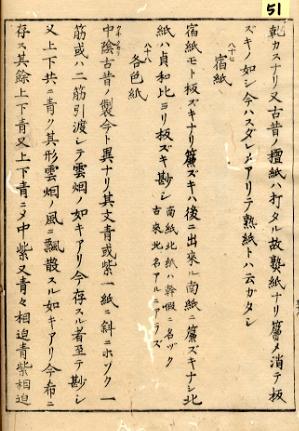 51
乾カスナリ又古昔ノ檀紙ハ打タル故熟紙ナリ簾メ消テ板
ズキノ如シ今ハスダレメアリテ熟紙トハ云ガタシ
八十七
宿紙
宿紙モト板ズキナリ簾ズキハ後ニ出來ル南紙ニ簾ズキナシ北
紙ハ貞和比ヨリ板ズキ尠シ 南紙北紙ハ幹假ニ名ヅク
古來此名アルニアラズ
八十八
各色紙
中陰古昔ノ製今ト異ナリ其文青或紫一紙ニ斜ニホソク一
筋或ハ二筋引渡シテ雲烟ノ如キアリ今存スル者至テ尠シ
又上下共ニ青ク其形雲烟ノ風ニ飄散スル如キアリ今希ニ
存ス其餘上下青又上下青ニメ中紫又青々相迫青紫相迫